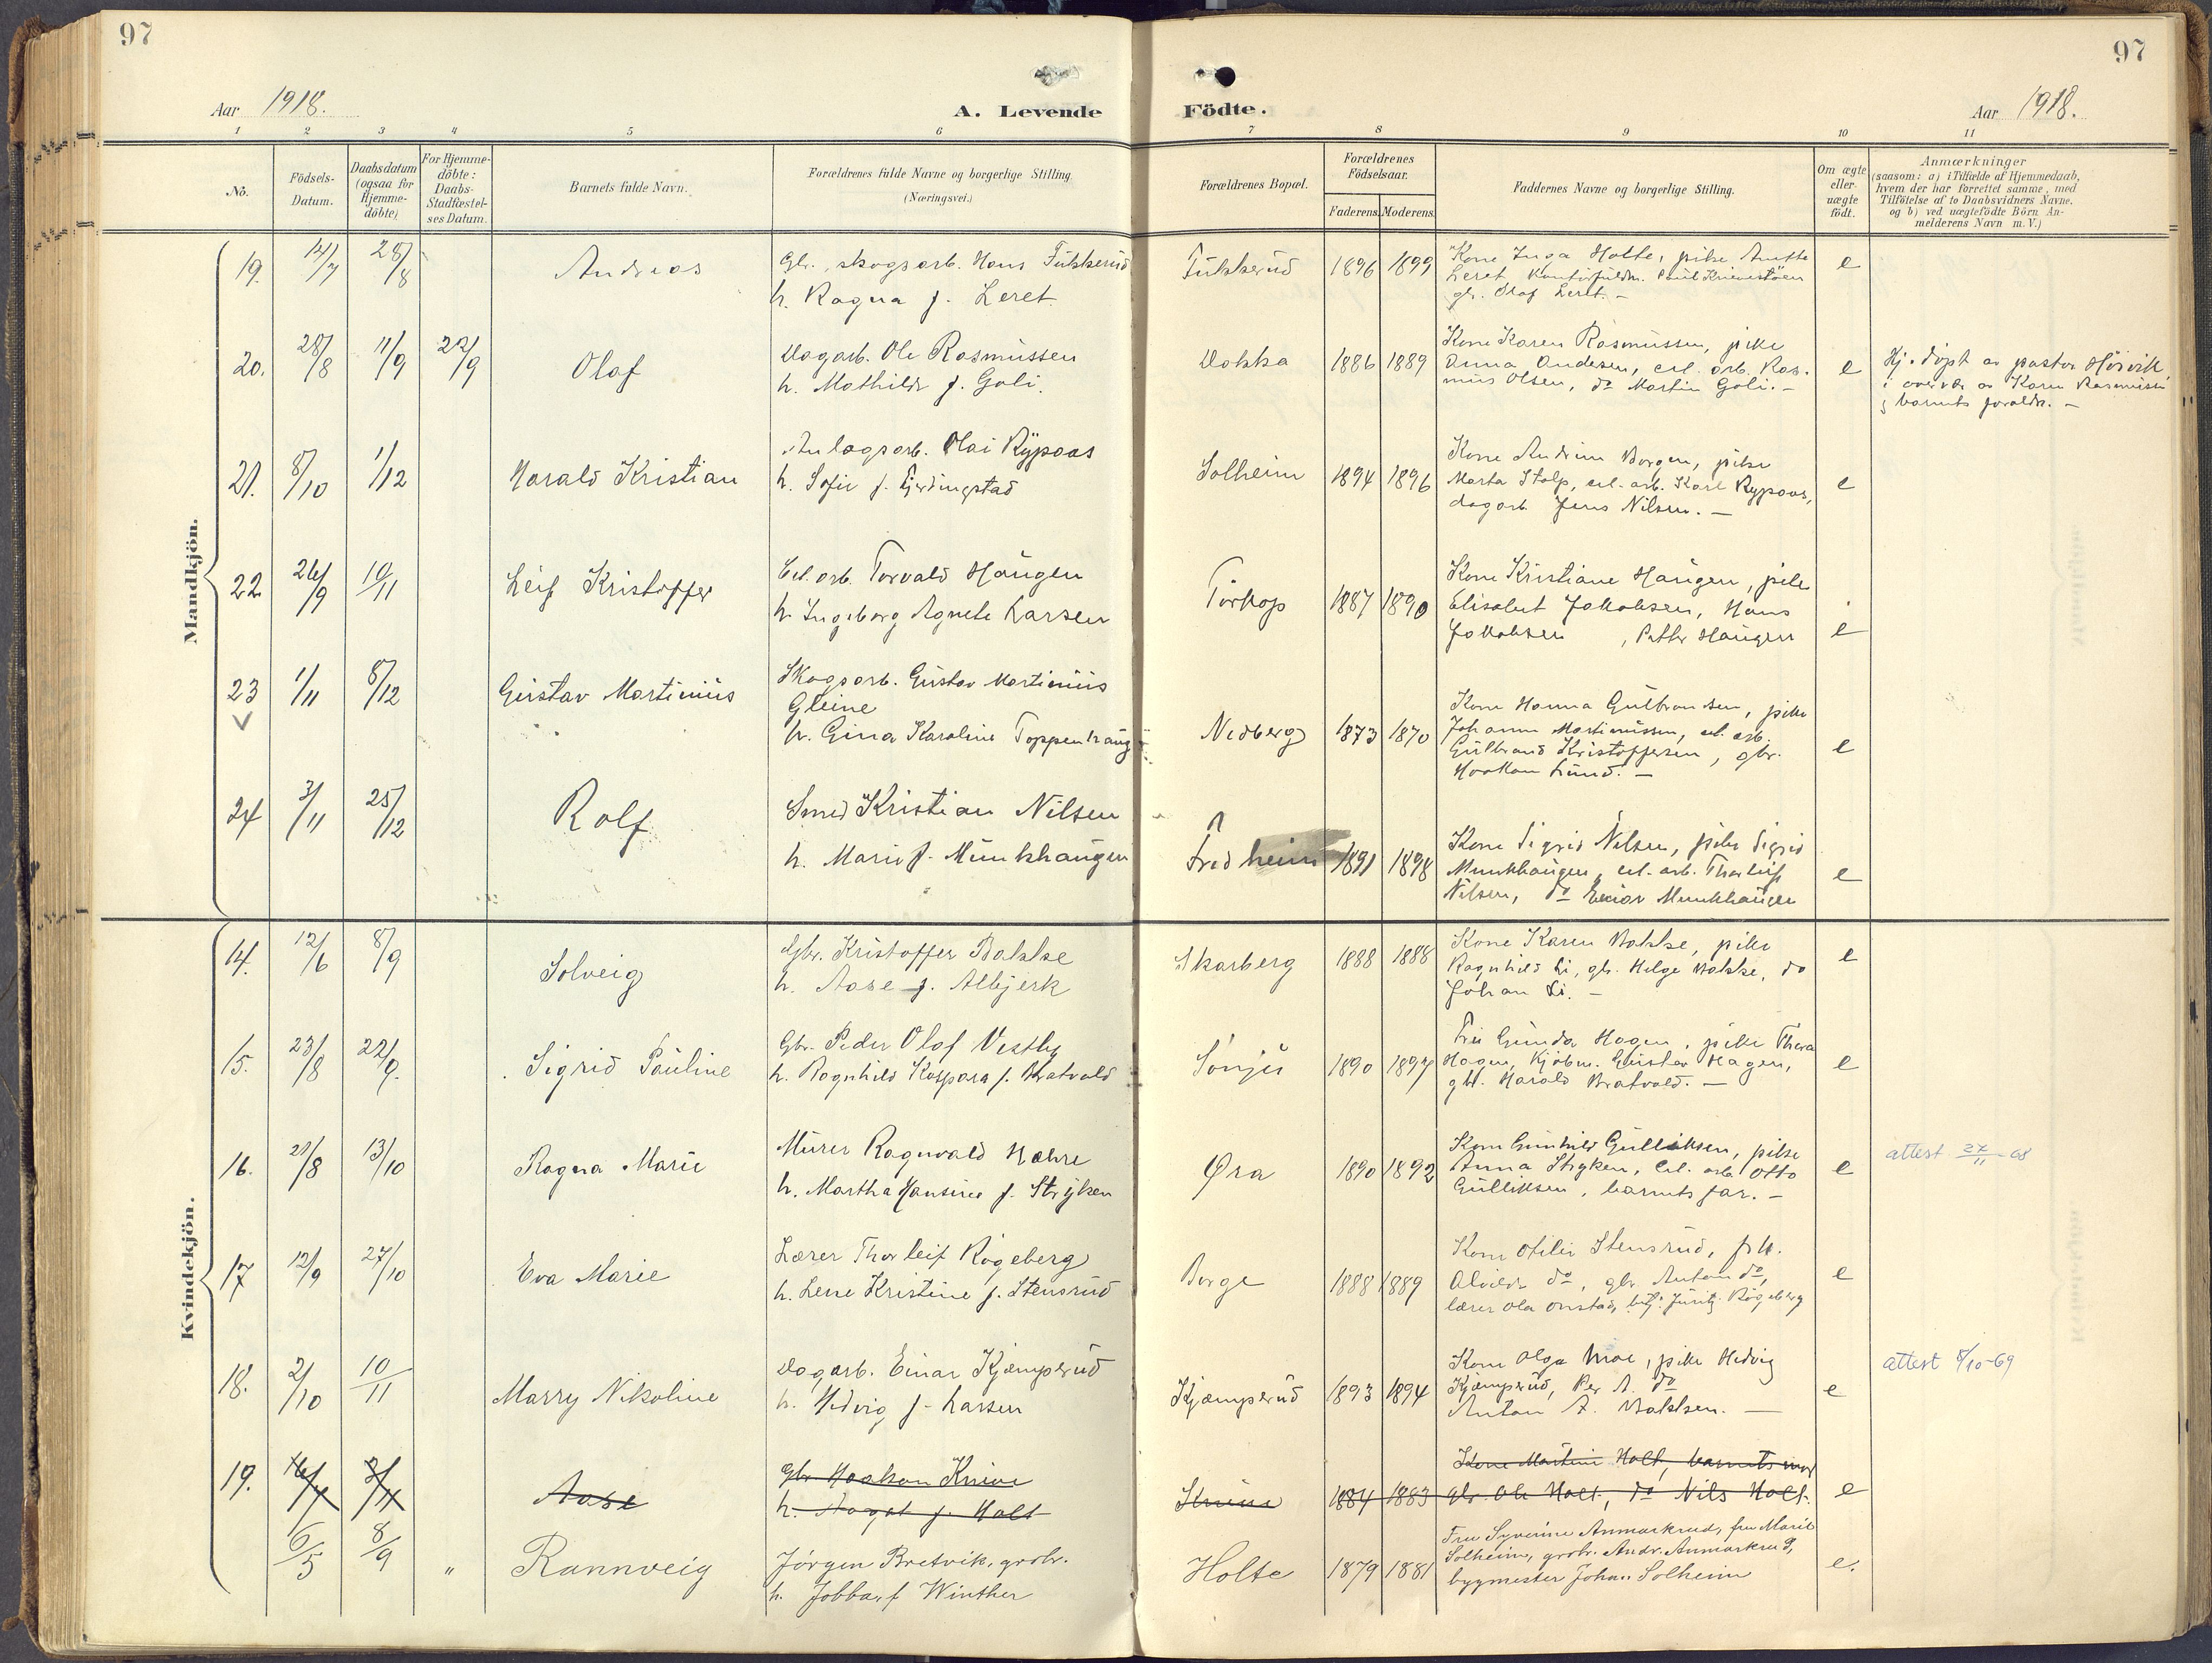 97
97
Aar 1918.
A. Levende Födte.
Aar 1918.
1 2 3 4 5 6 7 8 9 10 11
No.
Födsels-Datum.
Daabsdatum (ogsaa for Hjemme-döbte)
For Hjemme-döbte: Daabs-Stadfæstel-ses Datum.
Barnets fulde Navn.
Forældrenes fulde Navne og borgerlige Stilling. (Næringsvei.)
Forældrenes Bopæl.
Forældrenes Födselsaar.
Faderens. Moderens.
Faddernes Navne og borgerlige Stilling.
Om ægte eller uægte födt.
Anmærkninger
(saasom: a) i Tilfælde af Hjemmedaab,
hvem der har forrettet samme, med
Tilföielse af to Daabsvidners Navne.
og b) ved uægtefödte Börn An-
melderens Navn m.V.)
Mandkjön.
19. 14/7 28/8 Andreas
Gbr., skogsarb. Hans Fükkerüd
h. Ragna f. Leret.
Fükkerüd 1896 1899
Kone Inga Holte, pike Anette
Leret,
gbr. Olaf Leret. –
e
20. 28/8 11/9 22/9 Olaf
Dagarb. Ole Rasmüssen
h. Mathilde f. Goli.
Dokka 1886 1889
Kone Karen Rasmüssen, pike
Anna Andersen, eel. arb. Ras-
müs Olsen, do Martin Goli. –
e
Hj. døpt av pastor Hörvik
i overvær av Karen Rasmüssen
& barnets foraldre. –
21. 8/10 1/12 Harald Kristian
Anlægsarb. Olai Rÿpaas
h. Sofie f. Gjerdingstad
Solheim 1894 1896
Kone Andrine Borgen, pike
Marta Stolp, eel. arb. Karl Rypaas,
dagarb. Jens Nilsen. –
e
22 26/9 10/11 Leif Kristoffer
Eel. arb. Torvald Haügen
h. Ingeborg Agnete Larsen
Törkop 1887 1890
Kone Kristiane Haügen, pike
Elisabet Jakobsen, Hans
Jakobsen, Petter Haügen
e
23 1/11 8/12 Güstav Martiniüs
Skogsarb. Güstav Martiniüs
Gleine
h. Gina Karoline Toppenhaüg
Nedberg 1873 1870
Kone Hanna Gülbrandsen, pike
Johanne Martiniüssen, eel. arb.
Gülbrand Kristoffersen, gbr.
Haakon Lünd. –
e
24 3/11 25/12 Rolf
Smed Kristian Nilsen
h. Marie f. Münkhaügen
Fredheim 1891 1898
Kone Sigrid Nilsen, pike Sigrid
Munkhaügen, eel. arb. Thorleif
Nilsen, do Einar Munkhaügen
e
Kvindekjön.
14. 12/6 8/9 Solveig
Gbr. Kristoffer Bakke
h. Aase f. Albjerk
Skarberg 1888 1888
Kone Karen Bakke, pike
Ragnhild Li, gbr. Helge Bakke, do
Johan Li. –
e
15. 23/8 22/9. Sigrid Paüline
Gbr. Peder Olaf Vestby
h. Ragnhild Kaspara f. Bratvold
Sönjü 1890 1894
Frü Günda Hagen, pike Thora
Hagen, Kjöbm. Güstav Hagen,
gbr. Harald Bratvold. –
e
16. 21/8 13/10 Ragna Marie
Mürer Ragnvald Hæhre
h. Martha Hansine f. Strÿken
Øra 1890 1892
Kone Günhild Gülliksen, pike
Anna Stryken, Eel. arb. Otto
Gülliksen, barnets far. –
e
attest 27/11-68
17 12/9 27/10 Eva Marie
Lærer Thorleif Rögeberg
h. Lene Kristine f. Stensrüd
Borge 1888 1889
Kone Otilie Stensrüd, pk.
Alvilde do, gbr. Anton do,
lærer Ola Onstad, Rögeberg
e
18. 2/10 10/11 Marry Nikoline
Dagarb. Einar Kjæmperüd
h. Hedvig f. Larsen
Kjæmperüd 1893 1894
Kone Olga Moe, pike Hedvig
Kjæmperüd, Per A. do
Anton A. Bakksen. –
e
attest 8/10-69
19. Aase
Gbr. Haakon Knive
h. Aagot f. Holt
Knive 1884 1883
Kone Martine Holt, barnets mor
gbr. Ole Holt, do Nils Holt.
e
6/5 8/9 " Rannveig
Jörgen Bretvik, grobr.
h. Jobba, f Winther
Holte 1879 1881
Fru Syverine Anmarkrud, fru Marie
Solheim, grobr. Andr. Anmarkrud,
bygmester Johan Solheim
e.